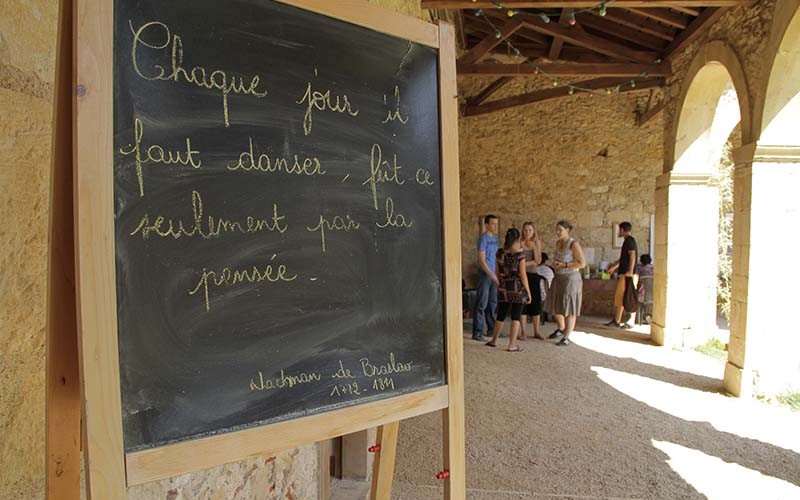 Chaque jour il
faut danser, fût-ce
seulement par la
pensée.
Nachman de Braslav
1772-1811